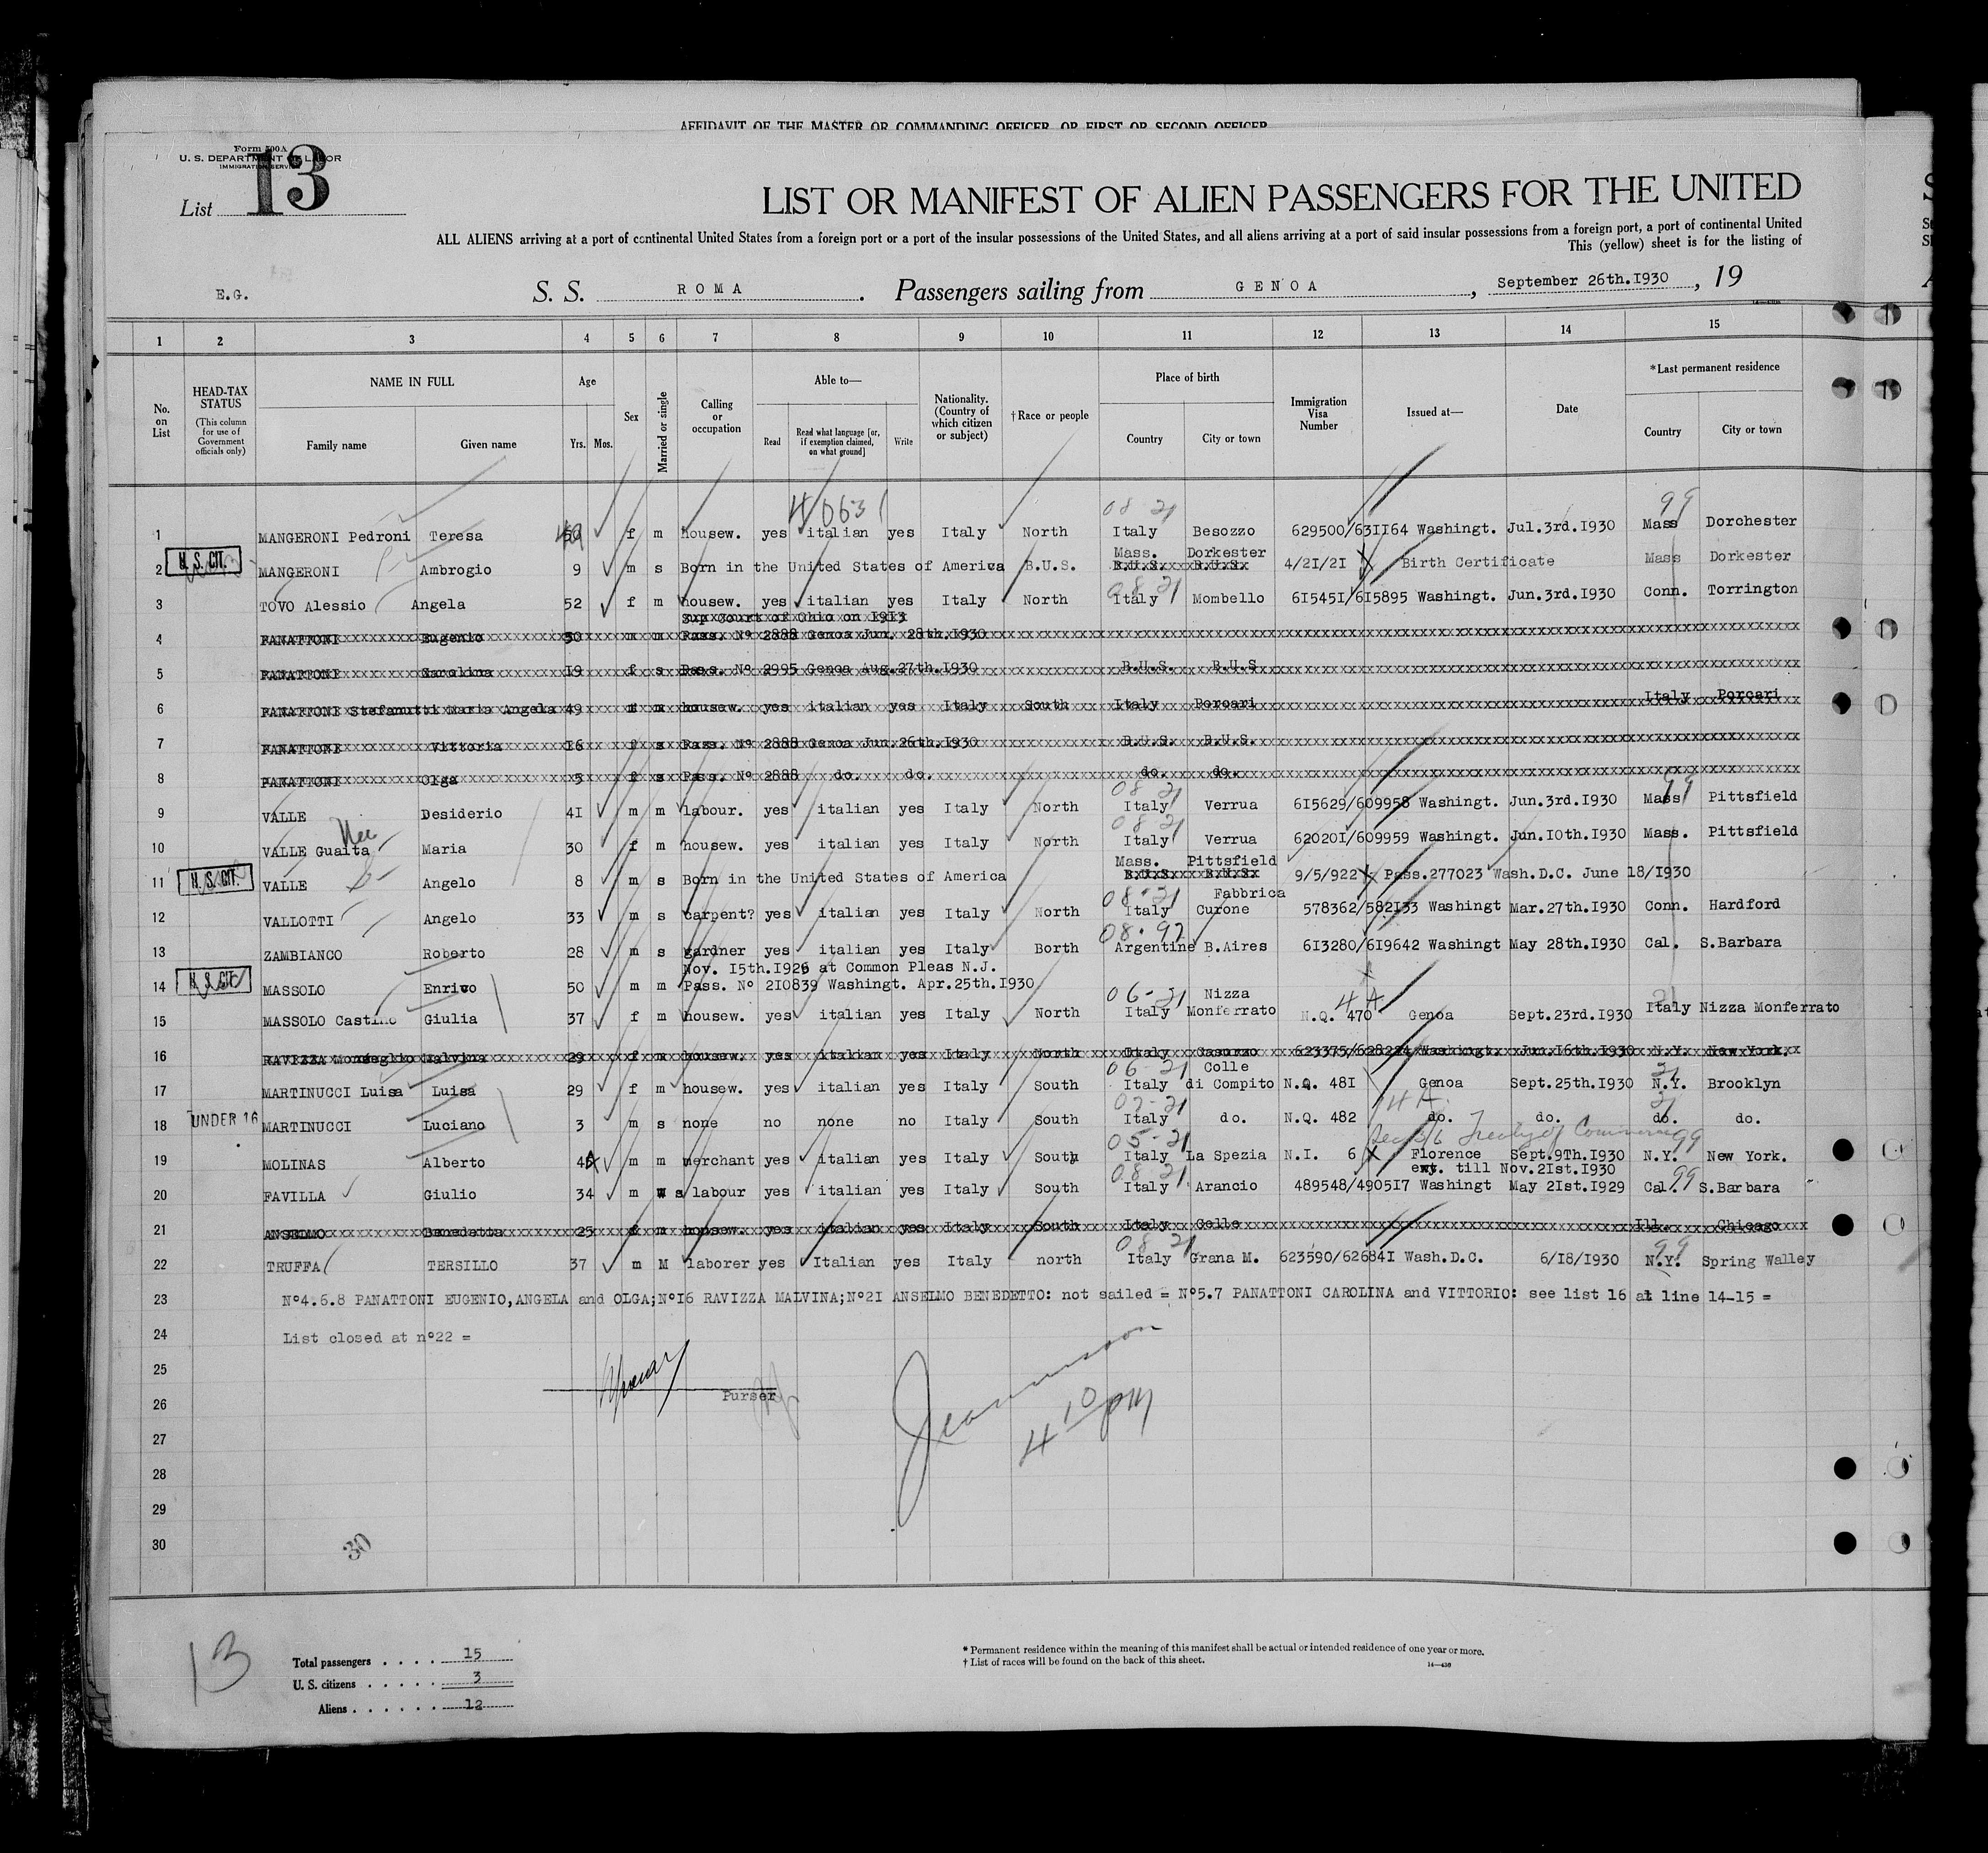 AFFIDAVIT OF THE MASTER OR COMMANDING OFFICER, OR FIRST OR SECOND OFFICER
Form 500A
U. S. DEPARTMENT OF LABOR
IMMIGRATION SERVICE
List 13
LIST OR MANIFEST OF ALIEN PASSENGERS FOR THE UNITED
ALL ALIENS arriving at a port of continental United States from a foreign port or a port of the insular possessions of the United States, and all aliens arriving at a port of said insular possessions from a foreign port, a port of continental United
This (yellow) sheet is for the listing of
E.G. S. S. ROMA . Passengers sailing from GENOA , September 26th.I930 , 19
1 2 3 4 5 6 7 8 9 10 11 12 13 14 15
No. on List HEAD-TAX STATUS (This column for use of Government officials only) NAME IN FULL Family name Given name Age Yrs. Mos. Sex Married or single Calling or occupation Able to— Read Read what language [or, if exemption claimed, on what ground] Write Nationality. (Country of which citizen or subject) †Race or people Place of birth Country City or town Immigration Visa Number Issued at— Date *Last permanent residence Country City or town
40631 08 21 99
1 MANGERONI Pedroni Teresa f m housew. yes italian yes Italy North Italy Besozzo 629500/63II64 Washingt. Jul.3rd.I930 Mass Dorchester
Mass. Dorkester
2 U. S. CIT. MANGERONI Ambrogio 9 m s Born in the United States of America B.U.S. B.U.S. B.U.S. 4/2I/2I Birth Certificate Mass Dorkester
08 21
3 TOVO Alessio Angela 52 f m housew. yes italian yes Italy North Italy Mombello 6I545I/6I5895 Washingt. Jun.3rd.I930 Conn. Torrington
Sup Court of Ohio on I9I3
4 PANATTONI Eugenio 50 m m Pass. Nº 2888 Genoa Jun. 28th.I930
5 PANATTONI Karolina I9 f s Pass. Nº 2995 Genoa Aug.27th.I930 B.U.S. B.U.S
6 PANATTONI Stefanutti Maria Angela 49 f m housew. yes italian yes Italy South Italy Porcari Italy Porcari
7 PANATTONI Vittoria I6 f s Pass. Nº 2888 Genoa Jun.26th.I930 B.U.S. B.U.S.
8 PANATTONI Olga 5 f s Pass. Nº 2888 do. do. do. do.
08 21 99
9 VALLE Desiderio 4I m m labour. yes italian yes Italy North Italy Verrua 6I5629/609958 Washingt. Jun.3rd.I930 Mass Pittsfield
Nee 08 21
10 VALLE Guaita Maria 30 f m housew. yes italian yes Italy North Italy Verrua 62020I/609959 Washingt. Jun.I0th.I930 Mass. Pittsfield
Mass. Pittsfield
11 U. S. CIT. VALLE Angelo 8 m s Born in the United States of America B.U.S. B.U.S. 9/5/922 Pass.277023 Wash.D.C. June I8/I930
08-21 Fabbrica
12 VALLOTTI Angelo 33 m s carpent? yes italian yes Italy North Italy Curone 578362/582I33 Washingt Mar.27th.I930 Conn. Hardford
08.92
13 ZAMBIANCO Roberto 28 m s gardner yes italian yes Italy Borth Argentine B.Aires 6I3280/6I9642 Washingt May 28th.I930 Cal. S.Barbara
Nov. I5th.I926 at Common Pleas N.J.
14 U. S. CIT. MASSOLO Enrico 50 m m Pass. Nº 2I0839 Washingt. Apr.25th.I930
06-21 Nizza 4A 21
15 MASSOLO Castino Giulia 37 f m housew. yes italian yes Italy North Italy Monferrato N.Q. 470 Genoa Sept.23rd.I930 Italy Nizza Monferrato
16 RAVIZZA Monseglio Malvina 29 f m housew. yes italian yes Italy North Italy Casorzo 623375/628224 Washingt. Jun.I6th.I930 N.Y. New York.
06-21 Colle 21
17 MARTINUCCI Luisa Luisa 29 f m housew. yes italian yes Italy South Italy di Compito N.Q. 48I Genoa Sept.25th.I930 N.Y. Brooklyn
07-21 4A 21
18 UNDER 16 MARTINUCCI Luciano 3 m s none no none no Italy South Italy do. N.Q. 482 do. do. do. do.
05-21 Sec 3/6 Treaty of Commerce 99
19 MOLINAS Alberto m m merchant yes italian yes Italy South Italy La Spezia N.I. 6 Florence Sept.9Th.I930 N.Y. New York.
08-21 ext. till Nov.2Ist.I930 99
20 FAVILLA Giulio 34 m s labour yes italian yes Italy South Italy Arancio 489548/4905I7 Washingt May 2Ist.I929 Cal. S.Barbara
21 ANSELMO Benedetta 25 f m housew. yes italian yes Italy South Italy Colle Ill. Chicago
08 21 99
22 TRUFFA TERSILLO 37 m M laborer yes Italian yes Italy north Italy Grana M. 623590/62684I Wash.D.C. 6/I8/I930 N.Y. Spring Walley
23 Nº4.6.8 PANATTONI EUGENIO,ANGELA and OLGA;NºI6 RAVIZZA MALVINA;Nº2I ANSELMO BENEDETTO: not sailed = Nº5.7 PANATTONI CAROLINA and VITTORIO: see list I6 at line I4-I5 =
24 List closed at nº22 =
25
26 Purser
4 10 pm
27
28
29
30
30
13
Total passengers . . . . 15
U. S. citizens . . . . . 3
Aliens . . . . . . 12
* Permanent residence within the meaning of this manifest shall be actual or intended residence of one year or more.
† List of races will be found on the back of this sheet.
14—430